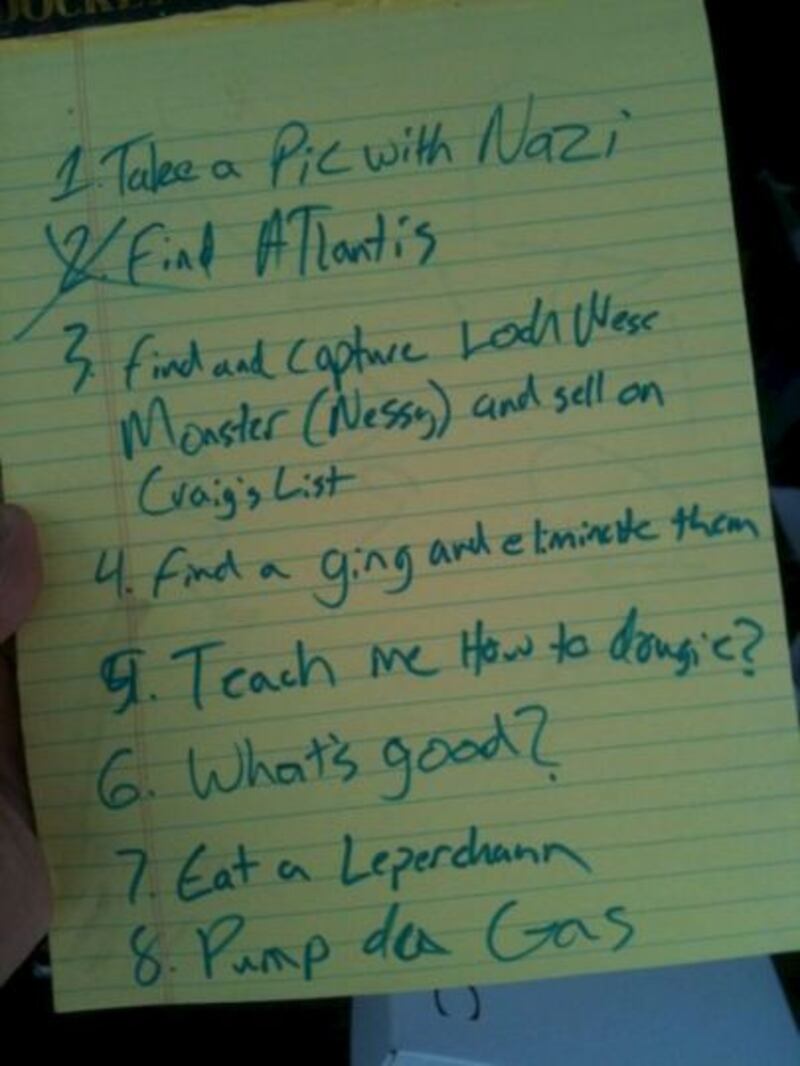 1. Take a Pic with Nazi
2. Find ATlantis
3. find and Capture Loch Ness
Monster (Nessy) and sell on
Craig's List
4. find a ging and eliminate them
5. Teach me How to dougie?
6. What's good?
7. Eat a Leperchann
8. Pump da Gas